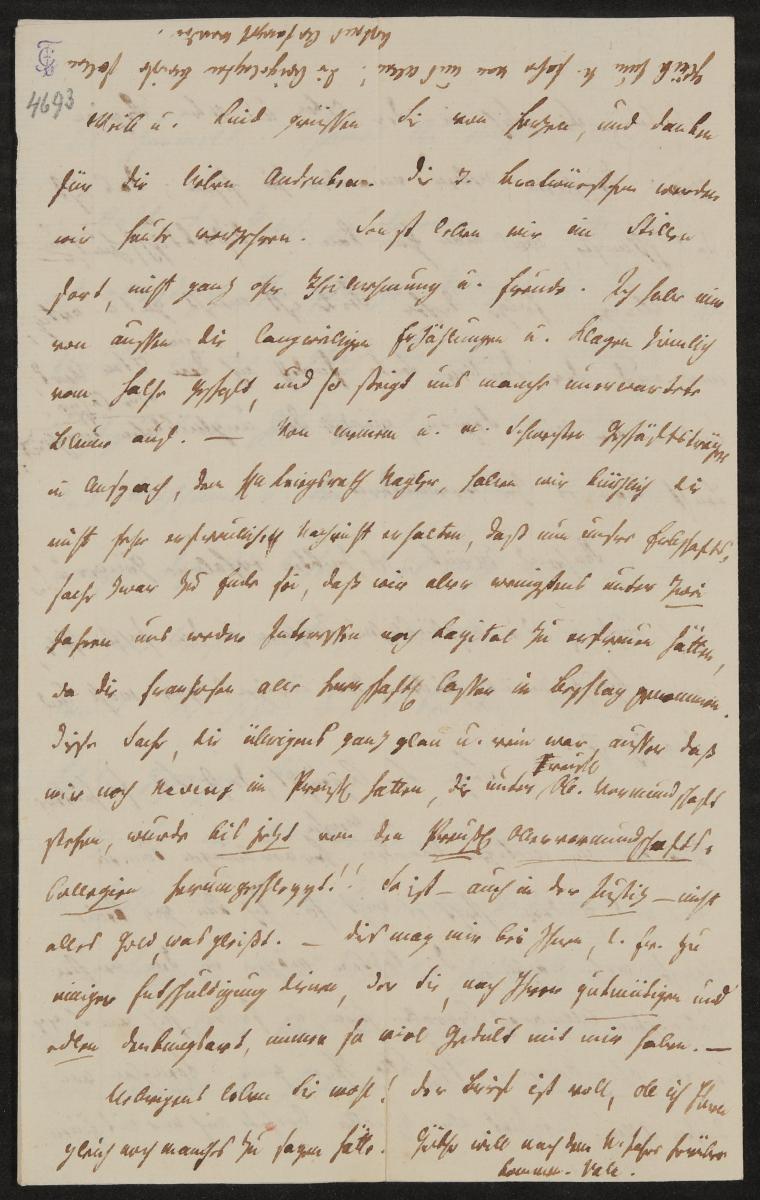 4693
Weib u. Kind grüssen Sie von Herzen, und danken
für die lieben Andenken. Die Bratwürstchen werden
wir heute verzehren. Sonst leben wir im Stillen
fort, nicht ganz ohne Theilnehmung u. Freude. Ich habe mir
von aussen die langweiligen Erzählungen u. Klagen ziemlich
vom Halse geschafft, und so steigt uns manche unerwartete
Blume auf. — Von meinem u. m. Schwester Geschäftsträger
in Anspach, dem Hn Kriegsrath Nagler, haben wir kürzlich die
nicht sehr erfreuliche Nachricht erhalten, daß nun unsre Erbschafts-
sache zwar zu Ende sei, daß wir aber wenigstens unter zwei
Jahren uns weder Interessen noch Kapital zu erfreuen hätten,
da die Franzosen alle herrschaftl Cassen in Beschlag genommen.
Diese Sache, die übrigens ganz glau u. rein war, ausser daß
wir noch Neveux im Preuss. hatten, die unter Preussl. Ob. Vormundschaft
stehen, wurde bis jetzt von den Preussl. Obervormundschafts-
Collegien herumgeschleppt!! Es ist — auch in der Justiz — nicht
alles Gold, was gleißt. — Dies mag mir bei Ihnen, l. Fr. zu
einiger Entschuldigung dienen, der Sie, nach Ihrer gutmütigen und
edlen Denkungsart, immer so viel Gedult mit mir haben. —
Uebrigens leben Sie wohl! Der Brief ist voll, ob ich Ihnen
gleich noch manches zu sagen hätte. Göthe will nach dem N. Jahre herüber
kommen. Vale.
Glück zum n. Jahre von uns allen! die beigelegten Briefe sollen